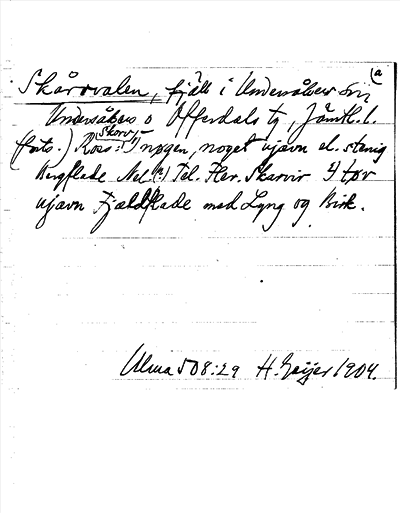 (a
Skårvalen, fjäll i Undersåkers sn,
Undersåkers o Offerdals tg, Jämtl. l.
(forts.) Ross: Skarv, 1) nøgen, noget ujævn el. stenig
Bergflade Nel(?) Tel. Fler. Skarvir 2) tør
ujævn Fjeldflade med Lyng og Birk.
Ulma 508:29 H. Geijer 1904.